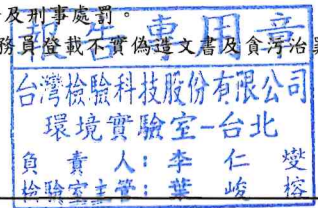 及刑事處罰。
務員登載不實偽造文書及貪污治罪
報告專用章
台灣檢驗科技股份有限公司
環境實驗室-台北
負責人：李仁燮
檢驗室主管：葉峻榕